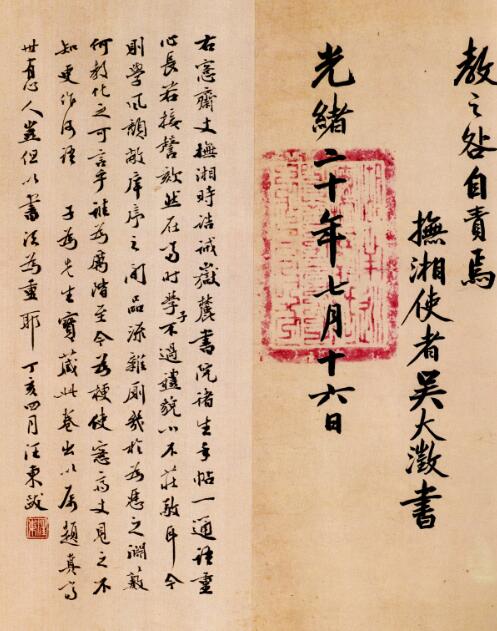 教之咎自責焉
撫湘使者吳大澂書
光緒二十年七月十六日
右愙齋丈撫湘時誥誡嶽麓書院諸生手帖一通語重
心長若接謦欬然在當時學子不過禮貌小不莊敬耳今
則學風頹敝庠序之間品流雜廁幾於為慝之淵藪
何教化之可言乎誰為厲階至今為梗使愙齋丈見之不
知更作何語 子為先生寶藏此卷出以屬題真高
世之人豈但以書法為重耶 丁亥四月汪東跋